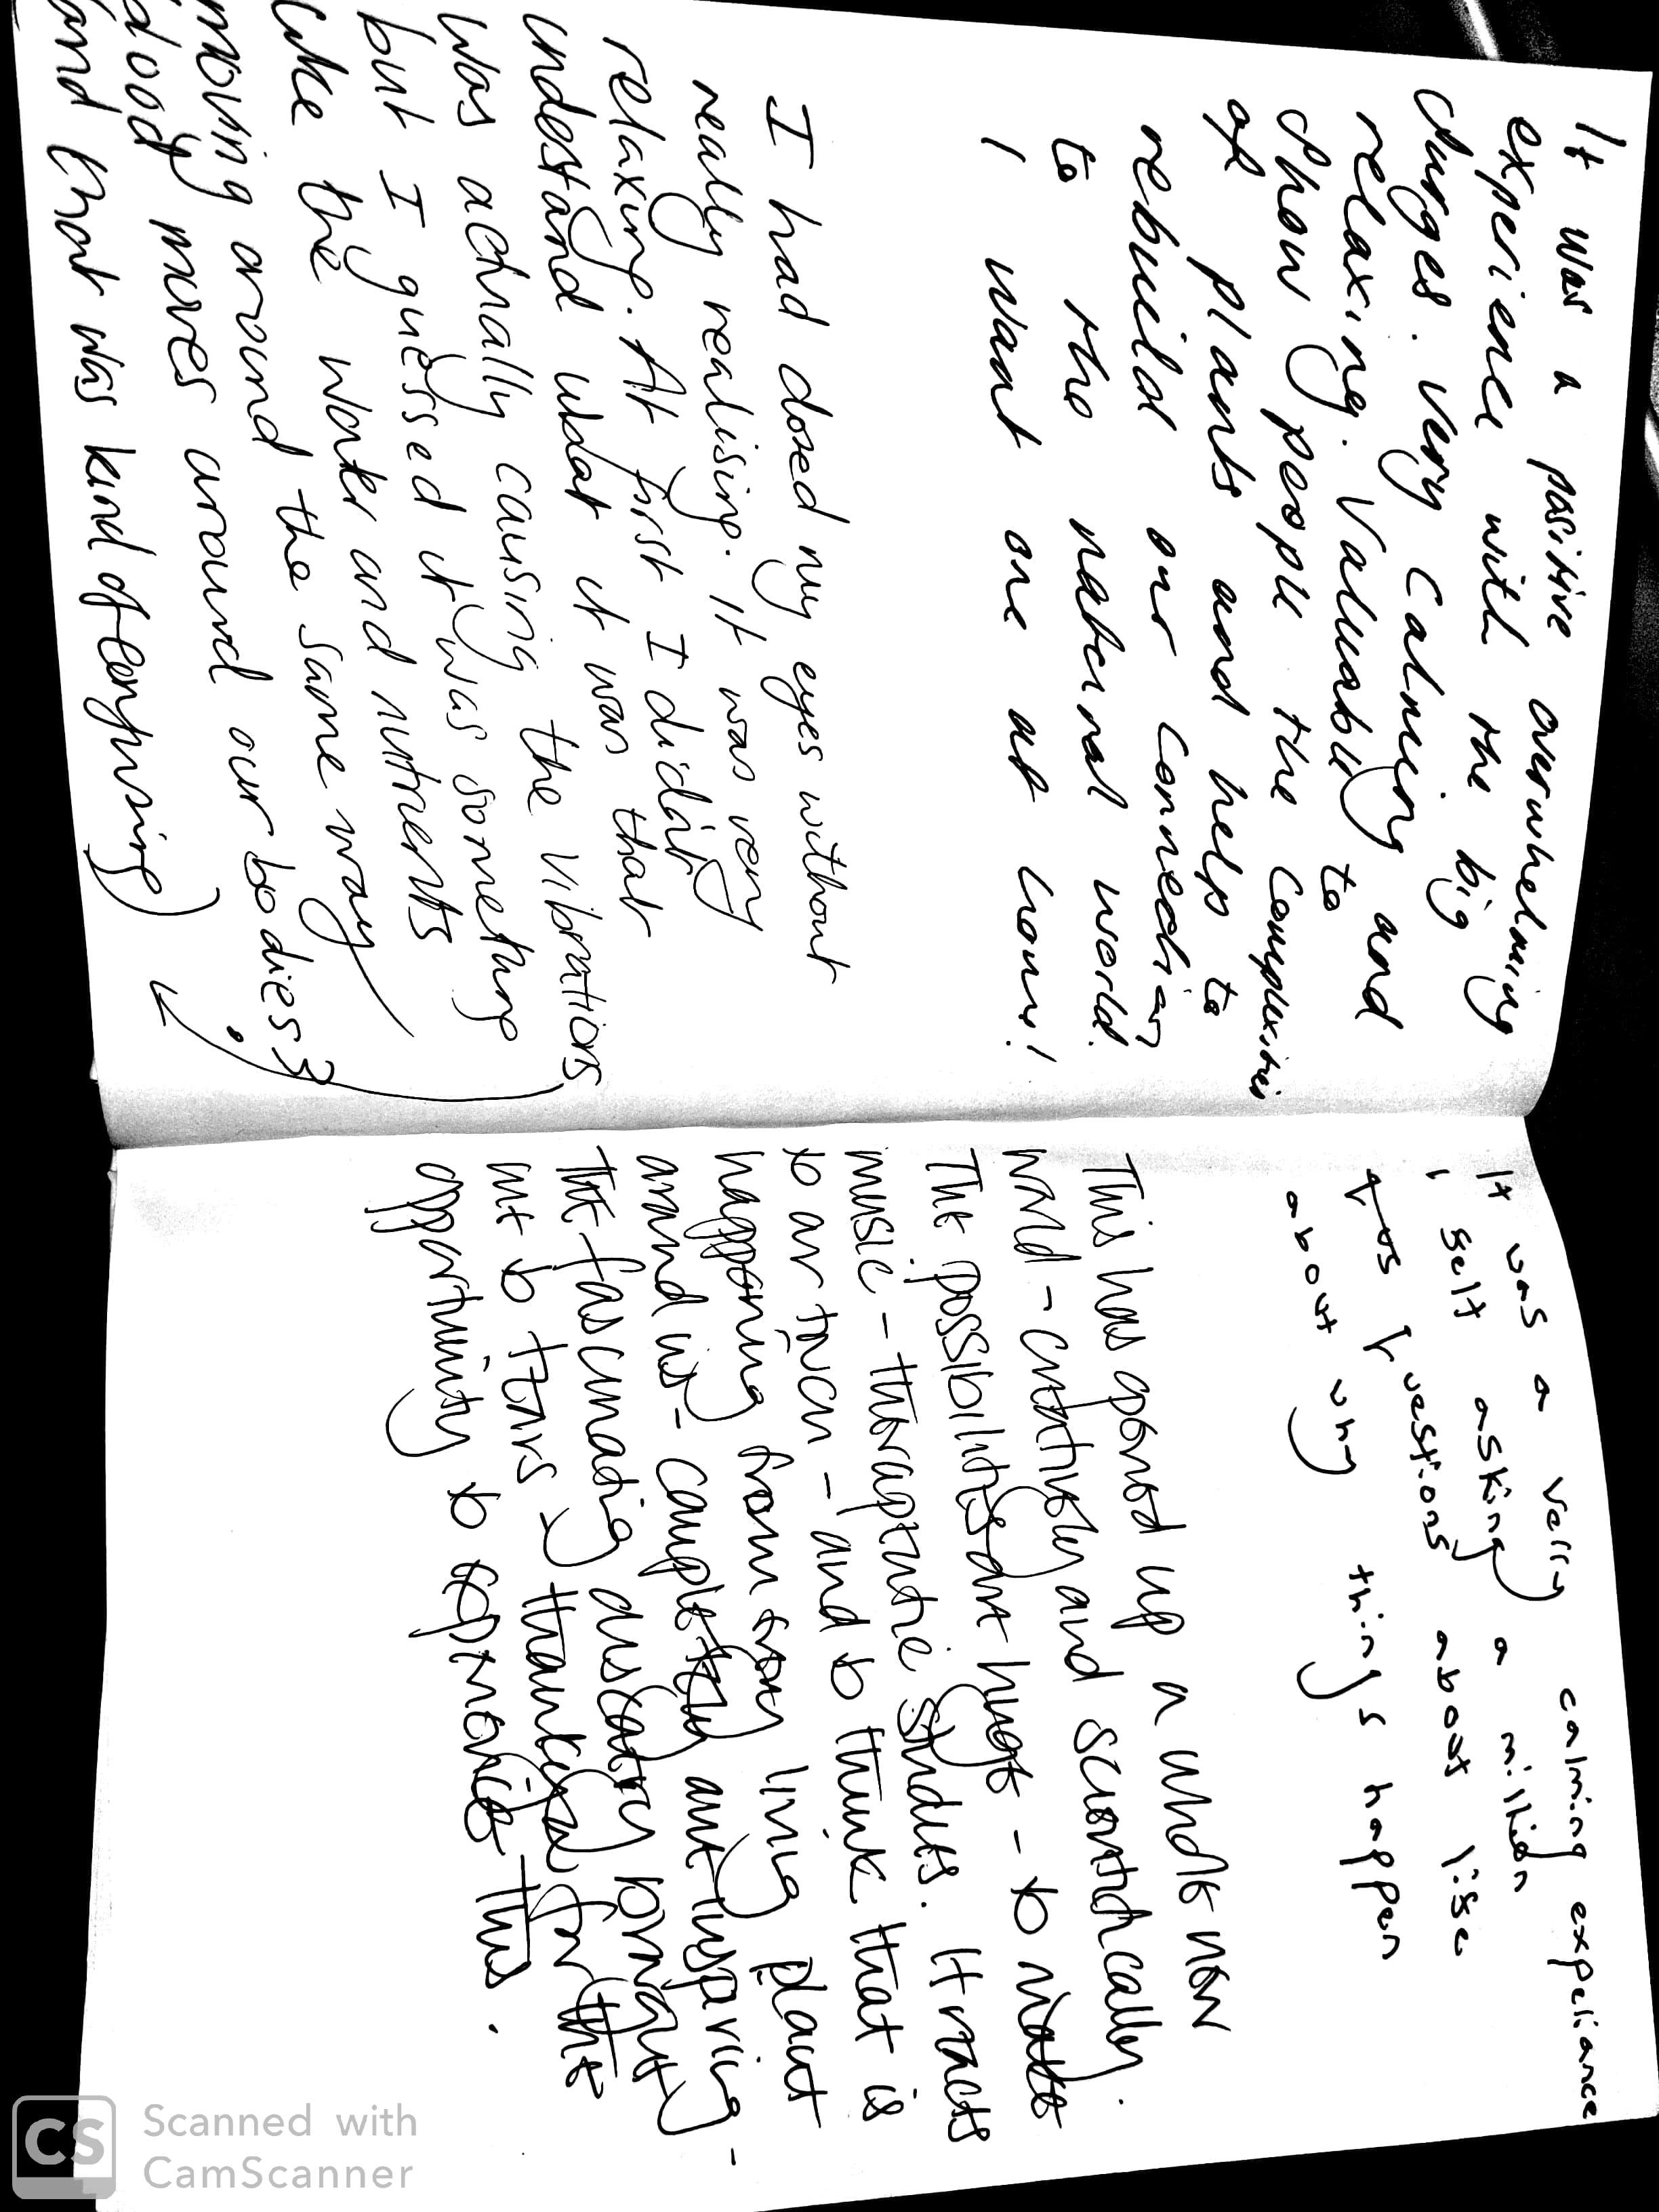 It was a positive overwhelming
experience with the big
changes. Very calming and
relaxing. Valuable to
show people the complexities
of plants and helps to
rebuild our connection
to the natural world.
I want one at home!
I had closed my eyes without
really realising. It was very
relaxing. At first I didn't
understand what it was that
was actually causing the vibrations
but I guessed it was something
like the water and nutrients
moving around the same way
blood moves around our bodies :)
(and that was kind of confusing)
It was a verry calming expeliance
I self asking a million
questions about lise
about why things happen
This has opened up a whole new
world - creatively and scientifically.
The possibilities are huge - to make
music - therapeutic studies. It reacts
to our touch - and to think that is
happening from every living plant
around us - completely awe-inspiring -
The fascinating discovery brought
me to tears - thankyou for the
opportunity to experience this.
Scanned with
CamScanner
CS